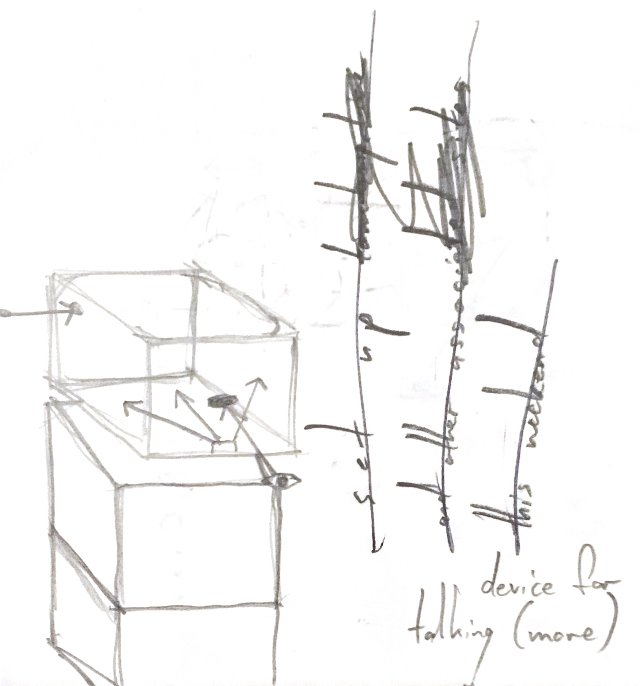 set up
and other associa
this weekend
device for
talking (more)